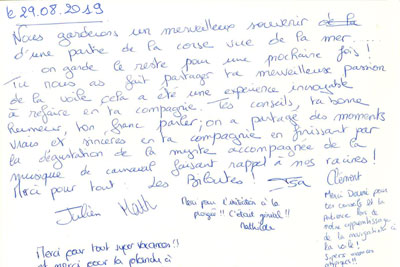 le 29.08.2019
Nous garderons un merveilleux souvenir de la
d'une partie de la corse vue de la mer...
on garde le reste pour une prochaine fois !
Tu nous as fait partager ta merveilleuse passion
de la voile cela a été une expérience
à refaire en ta compagnie. Tes conseils, ta bonne
humeur, ton franc parler ; on a partagé des moments
vrais et sincères en ta compagnie en finissant par
la dégustation de la myrte accompagnée de la
musique de carnaval faisant rappel à nos racines !
Merci pour tout : les Biloutes ! Isa
Julien Math
Merci pour l'initiation à la
C'était génial !!
Mathilde
Clément
Merci David pour
tes conseils et ta
patience lors de
notre apprentissage
de la navigation à
la voile !
Supers moments
Merci pour tout super vacances !!
et merci pour la planche à